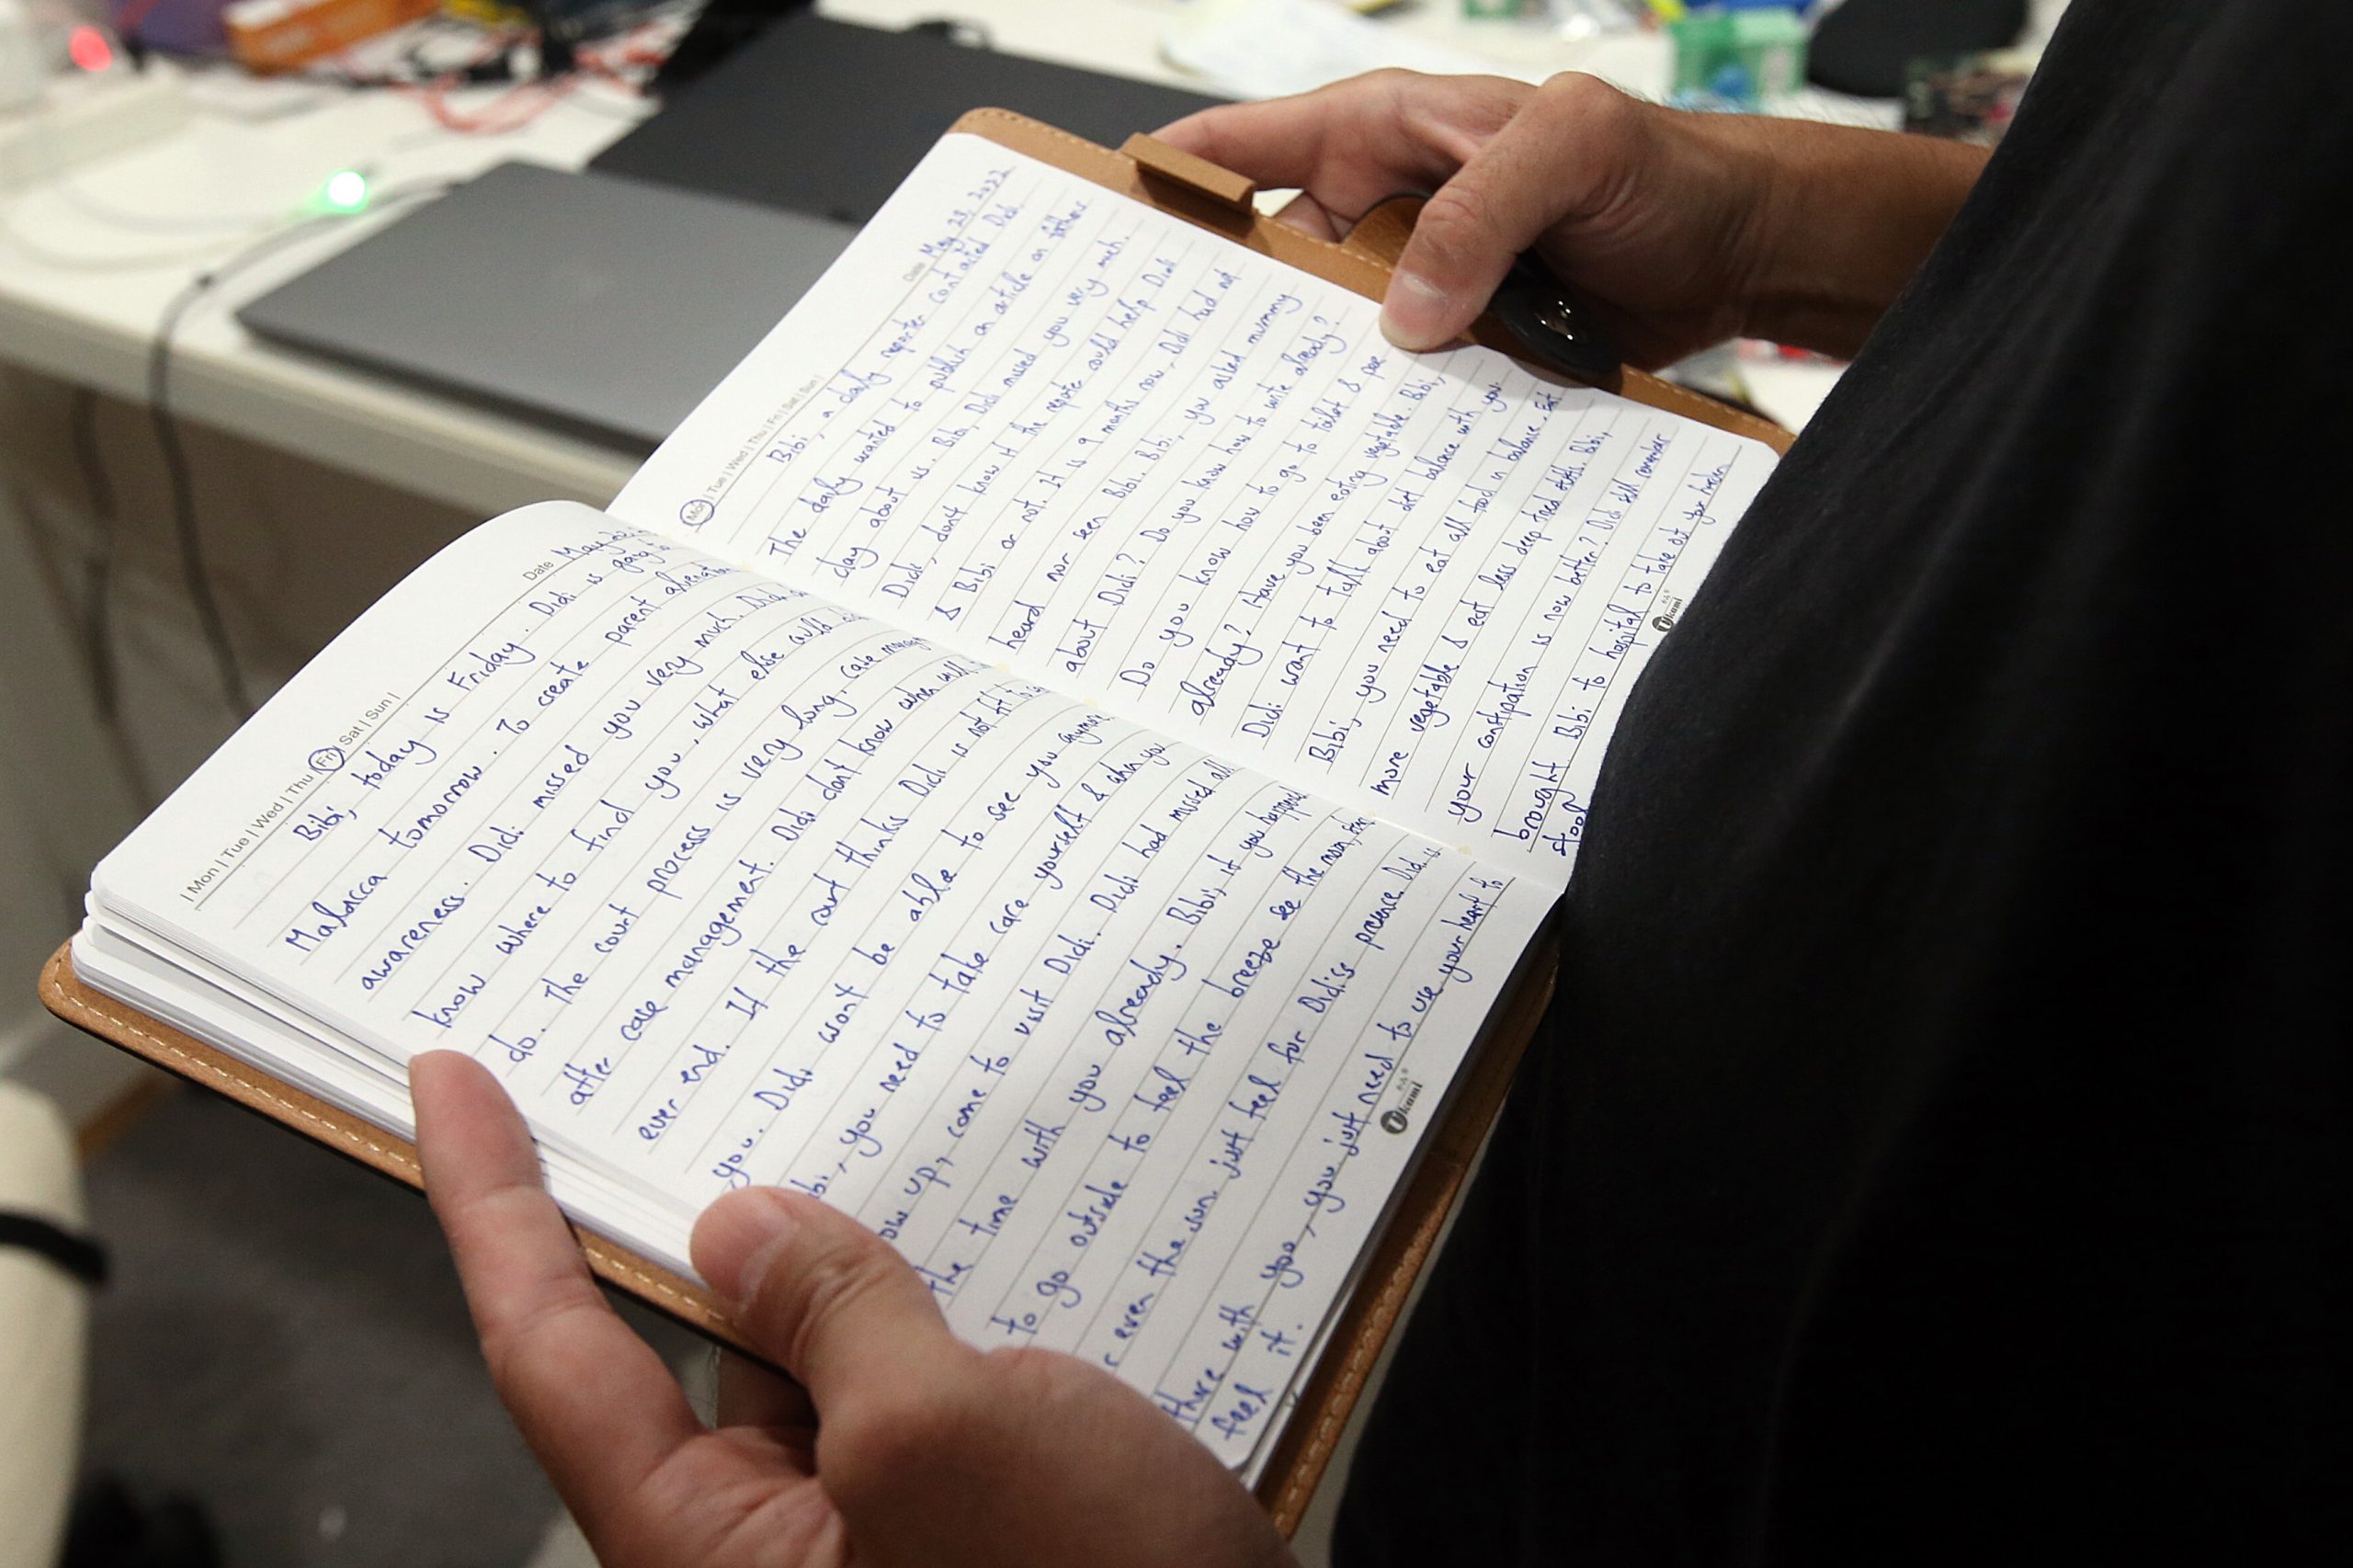 | Mon | Tue | Wed | Thu | Fri | Sat | Sun |
Date May 20,
Bibi, today is Friday. Didi is going to
Malacca tomorrow. To create parent alienation
awareness. Didi missed you very much. Didi
know where to find you, what else could
do. The court process is very long, case manage
after case management. Didi dont know when will
ever end. If the court thinks Didi is not fit to
you. Didi wont be able to see you anymore.
bi, you need to take care yourself & when you
ow up, come to visit Didi. Didi had missed all
the time with you already. Bibi, if you happened
to go outside to feel the breeze see the moon,
r even the sun. just feel for Didi's presence. Didi is
there with you, you just need to use your heart to
feel it.
kami
Mon | Tue | Wed | Thu | Fri | Sat | Sun |
Date May 23, 2022
Bibi, a daily reporter contacted Didi.
The daily wanted to publish an article on fathers
day about us. Bibi, Didi missed you very much.
Didi, dont know if the reporte could help Didi
& Bibi or not. It is 9 months now, Didi had not
heard nor seen Bibi. Bibi, you asked mummy
about Didi? Do you know how to write already?
Do you know how to go to toilet & pee
already? Have you been eating vegetable. Bibi,
Didi want to talk about diet balance with you.
Bibi, you need to eat all food in balance. Eat
more vegetable & eat less deep fried stuffs. Bibi,
your constipation is now better? Didi still remember
brought Bibi to hospital to take out your harden
stool
kami